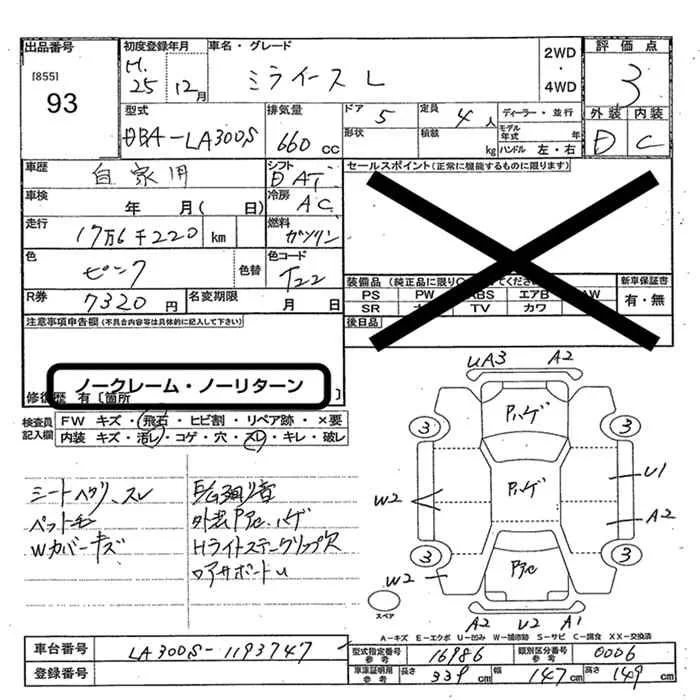 出品番号
[855]
93
初度登録年月
H.
25 12月
車名・グレード
ミライース L
2WD
・
4WD
評価点
3
外装 内装
D C
型式
DBA-LA300S
排気量
660 cc
ドア 5
形状
定員 4 人
積載 kg
ディーラー・並行
モデル年式 年
ハンドル 左・右
車歴
自家用
シフト
DAT
車検
年 月( 日)
冷房
AC
走行
17万6千220 km
燃料
ガソリン
色
ピンク
色替
色コード
T22
R券
7320 円
名変期限
月 日
セールスポイント(正常に機能するものに限ります)
装備品(純正品に限り
てくださ
新車保証書
PS PW ABS エアB AW
SR TV カワ
有・無
後日品
注意事項申告欄(不具合内容等は具体的に記入して下さい)
ノークレーム・ノーリターン
修復歴 有〔箇所 〕
検査員
記入欄
FW キズ・飛石・ヒビ割・リペア跡・×要
内装 キズ・汚レ・コゲ・穴・スレ・キレ・破レ
シートヘタリ、スレ
ペット毛
Wカバーキズ
E/G廻り音
外装Pアセ、ハゲ
Hライトステークリップ欠
ロアサポートU
UA3 A2
Pハゲ
3 3
Pハゲ
U1
W2
A2
3 3
Pアセ
W2
スペア
A2 U2 A1
A-キズ E-エクボ U-凹み W-補修跡 S-サビ C-腐食 XX-交換済
車台番号
LA300S-1193747
登録番号
型式指定番号
参考
16986
類別区分番号
参考
0006
車庫証明用
参考
長さ 339 cm
幅 147 cm
高さ 149 cm